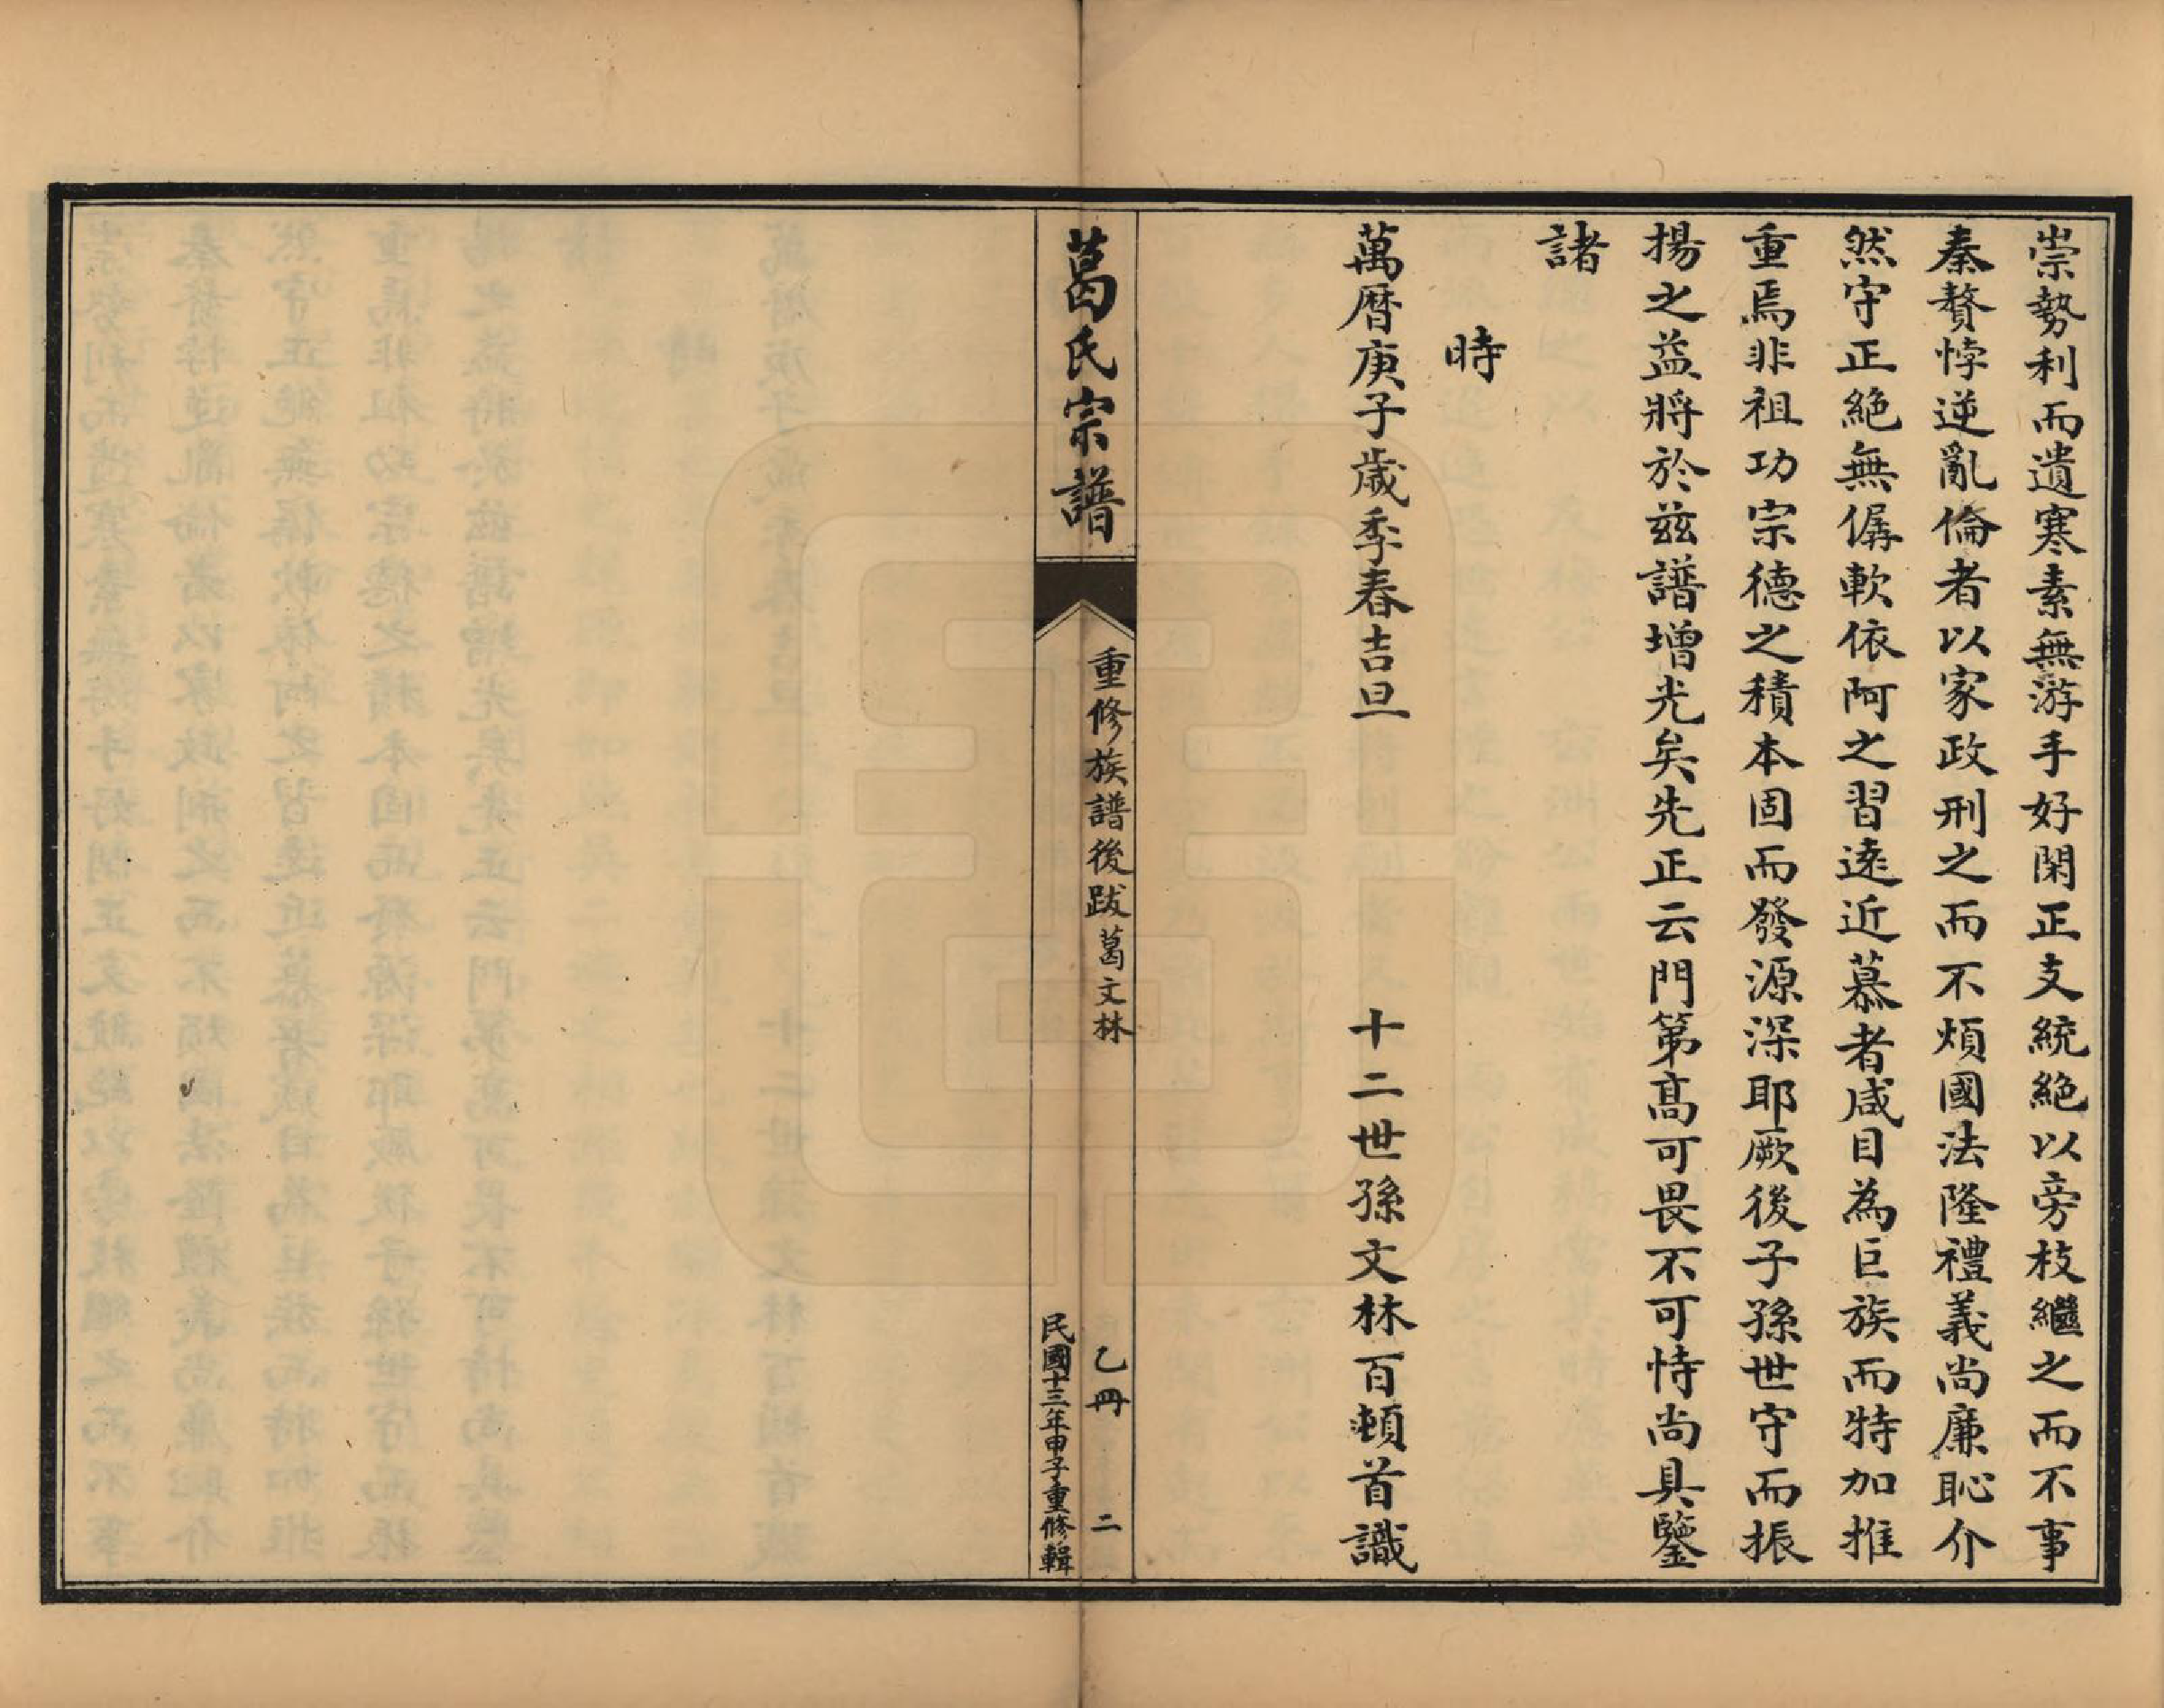 崇勢利而遺寒素無游手好閑正支統絶以旁枝繼之而不事
秦贅悖逆亂倫者以家政刑之而不煩國法隆禮義尚廉恥介
然守正絶無僝軟依阿之習逺近慕者咸目為巨族而特加推
重焉非祖功宗德之積本固而發源深耶厥後子孫世守而振
揚之益將於兹譜增光矣先正云門第髙可畏不可恃尚具鑒
諸
時
萬曆庚子歲季春吉旦　十二世孫文林百頓首識
葛氏宗譜
重修族譜後跋葛文林
乙冊　二
民國十三年甲子重修輯